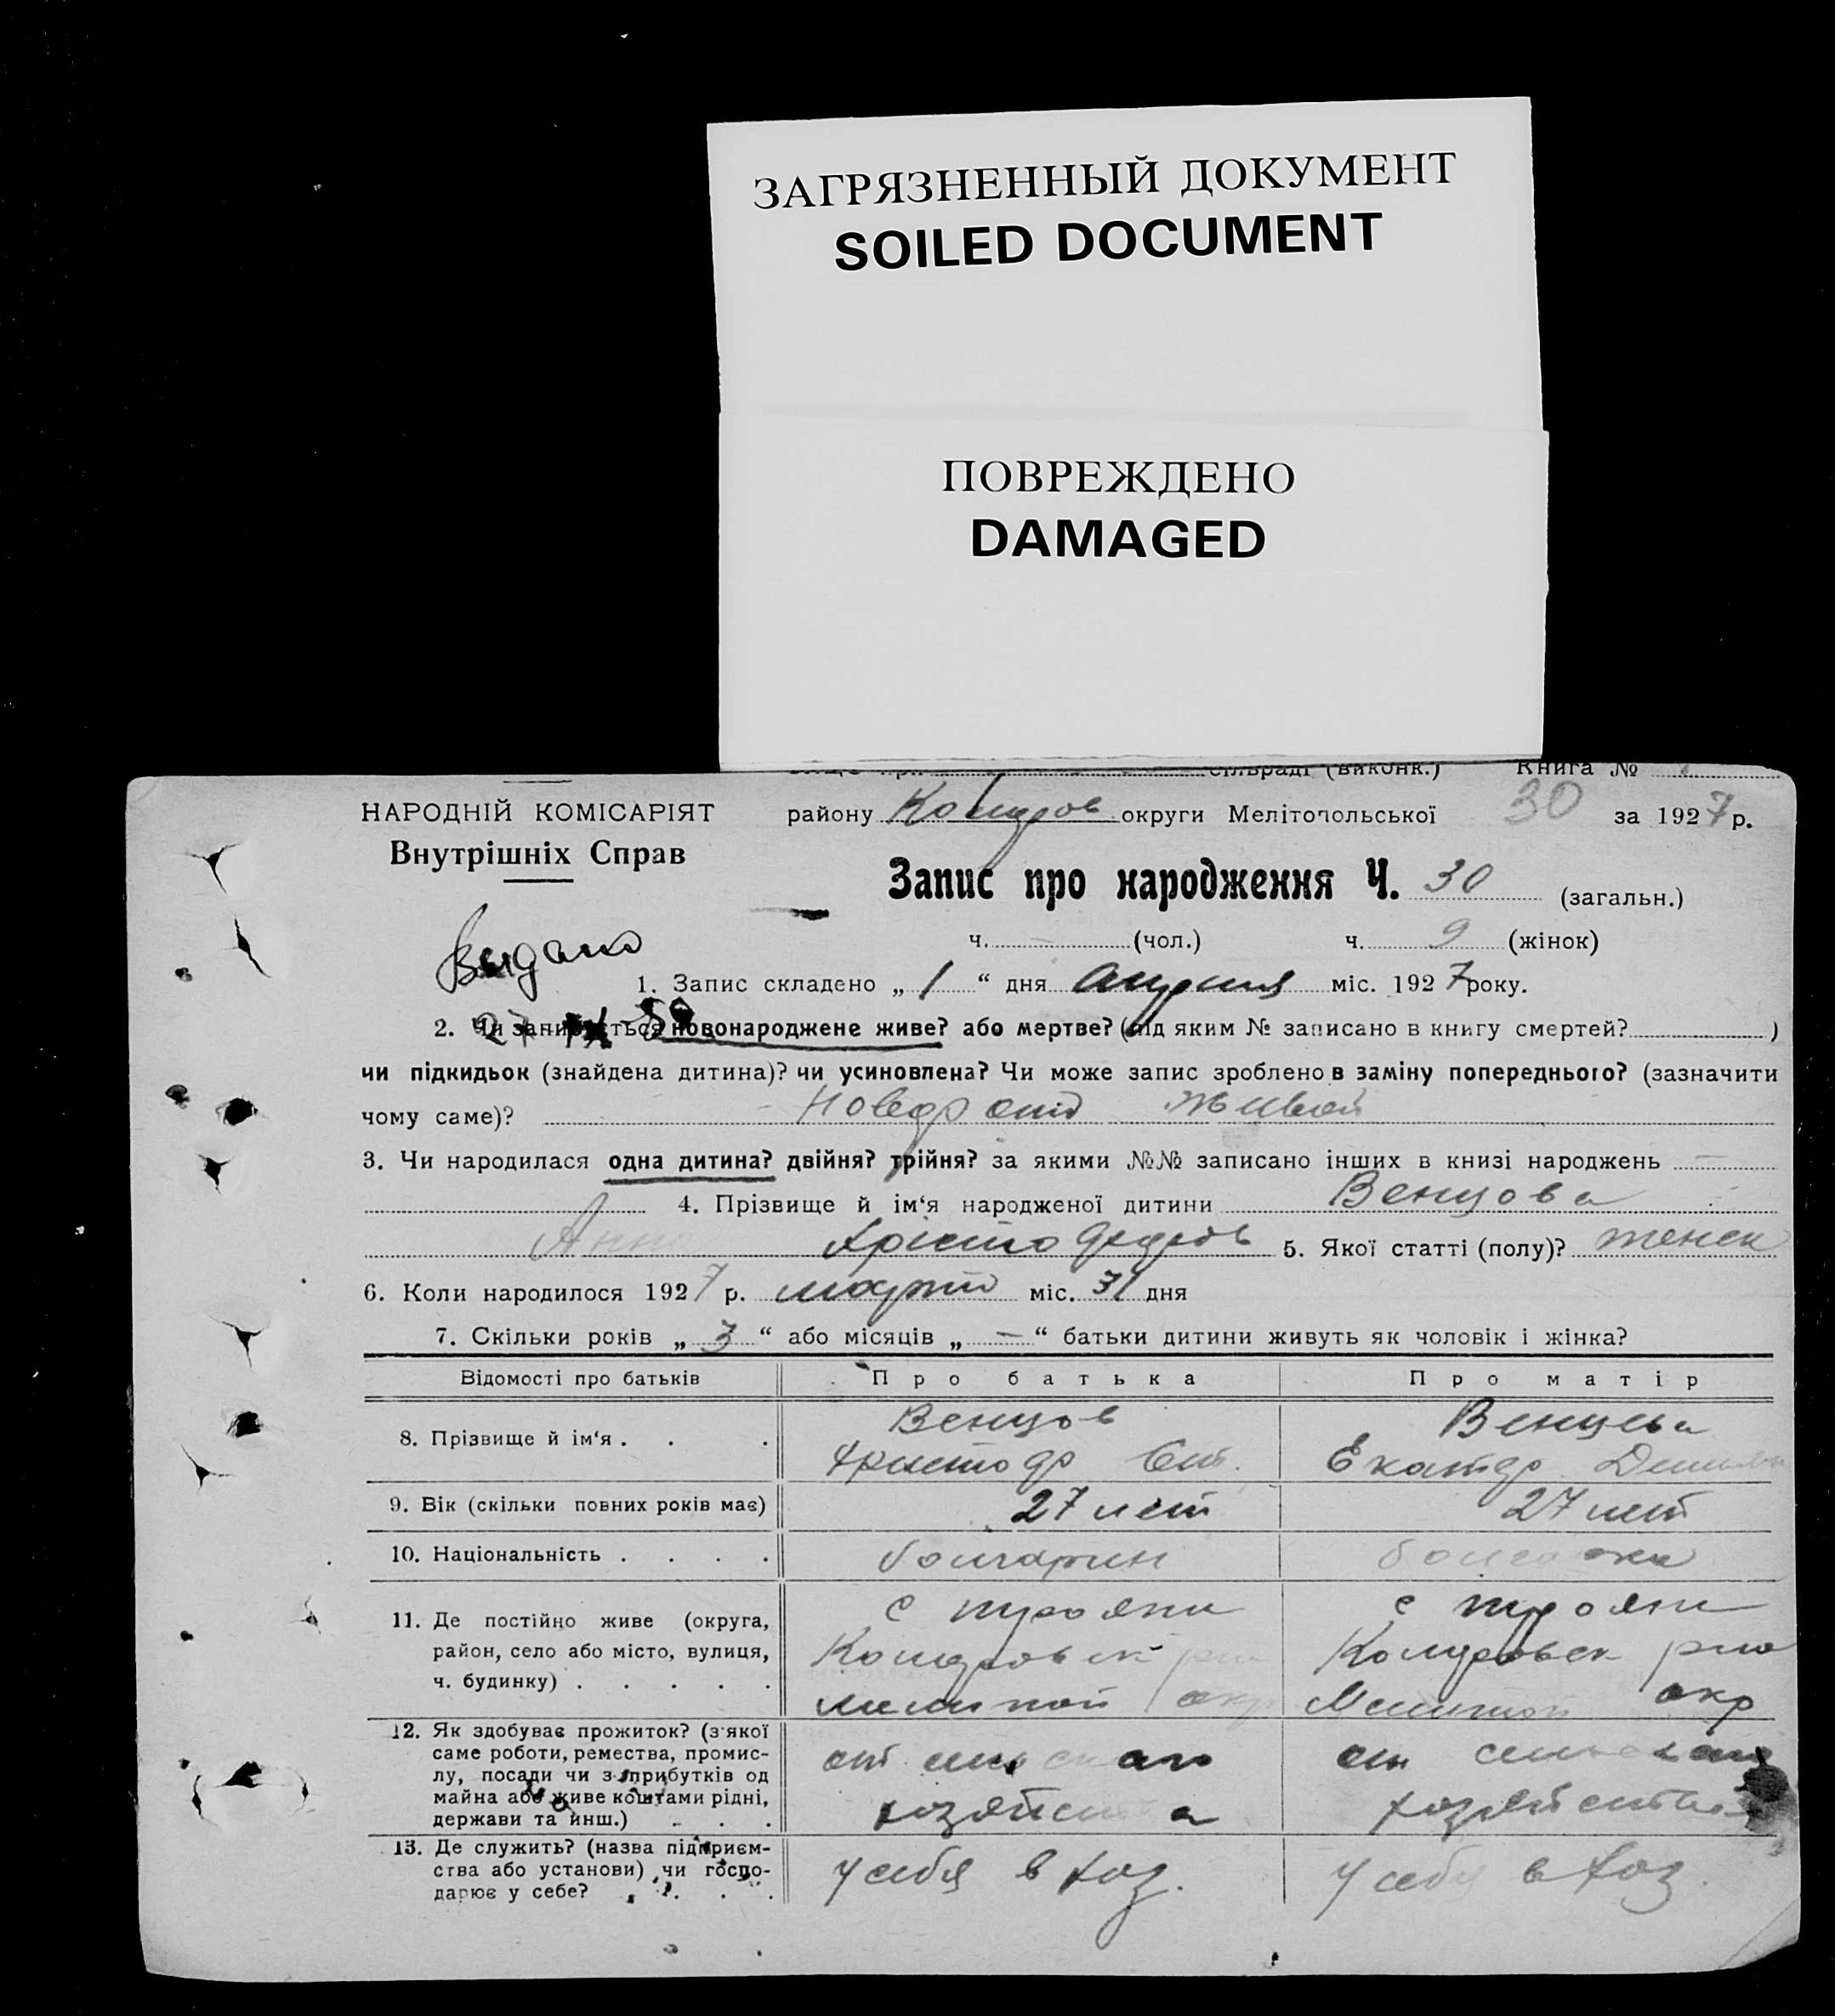 ЗАГРЯЗНЕННЫЙ ДОКУМЕНТ
SOILED DOCUMENT
ПОВРЕЖДЕНО
DAMAGED
сільраді (виконк.) Книга №
НАРОДНІЙ КОМІСАРІЯТ району округи Мелітопольської 30 за 1927 р.
Внутрішніх Справ
Запис про народження Ч. 30 (загальн.)
Видано
ч. — (чол.) ч. 9 (жінок)
1. Запис складено „ 1 “ дня апреля міс. 1927 року.
2. Чи записується новонароджене живе? або мертве? (під яким № записано в книгу смертей? )
чи підкидьок (знайдена дитина)? чи усиновлена? Чи може запис зроблено в заміну попереднього? (зазначити
чому саме)? живой
3. Чи народилася одна дитина? двійня? трійня? за якими №№ записано інших в книзі народжень —
4. Прізвище й ім‘я народженої дитини Венцова
Анна 5. Якої статті (полу)? женск
6. Коли народилося 1927 р. март міс. 31 дня
7. Скільки років „ 3 “ або місяців „ — “ батьки дитини живуть як чоловік і жінка?
Відомості про батьків Про батька Про матір
8. Прізвище й ім‘я . . . Венцов Венцова
9. Вік (скільки повних років має) 27 лет 27 лет
10. Національність . . . . болгарин болгарка
11. Де постійно живе (округа, с трояни с трояни
район, село або місто, вулиця,
ч. будинку) . . . . . окр
12. Як здобуває прожиток? (з якої
саме роботи, ремества, промис- от сельскаго от сельскаго
лу, посади чи з прибутків од
майна або живе коштами рідні, хозяйства хозяйства
держави та инш.) . . .
13. Де служить? (назва підприєм-
ства або установи) чи госпо- у себя в хоз. у себя в хоз.
дарює у себе? . . . .